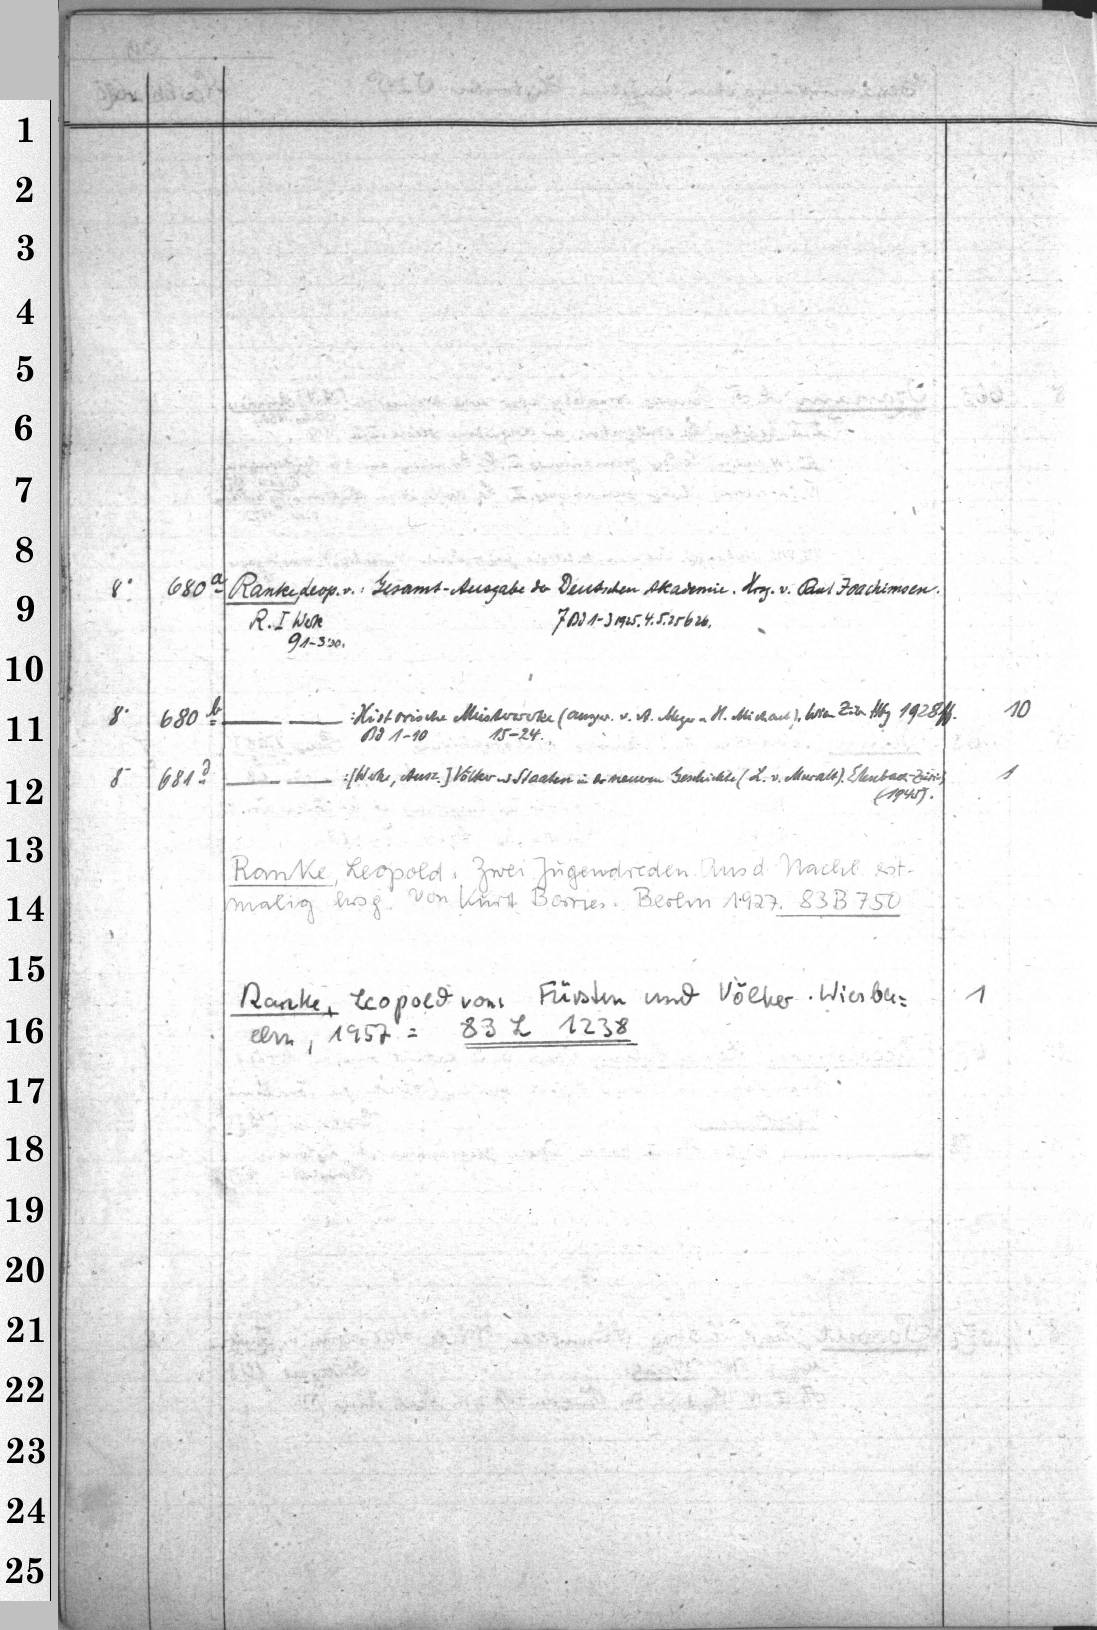 1
2
3
4
5
6
7
8
8° 680a Ranke, Leop. v.: Gesamt-Ausgabe der Deutschen Akademie. Hrsg. v. Paul Joachimsen.
9
R. I Werk 7 Bd 1-3 1925. 4. 5. 25 b 26.
9 1-3 '30.
10
8° 680b — — : Historische Meisterwerke (ausgew. v. A. Meyer u. H. Michael). Wien Zür. Hbg 1928ff. 10
11
Bd 1-10 15-24.
8° 681d — — : [Werke, Ausz.] Völker u. Staaten in der neueren Geschichte (L. v. Muralt). Erlenbach-Zürich 1
12
(1945).
13
Ranke, Leopold: Zwei Jugendreden. Aus d. Nachl. erst-
14
malig hrsg. von Kurt Borries. Berlin 1927. 83 B 750
15
Ranke, Leopold von: Fürsten und Völker. Wiesba= 1
16
den, 1957 = 83 L 1238
17
18
19
20
21
22
23
24
25